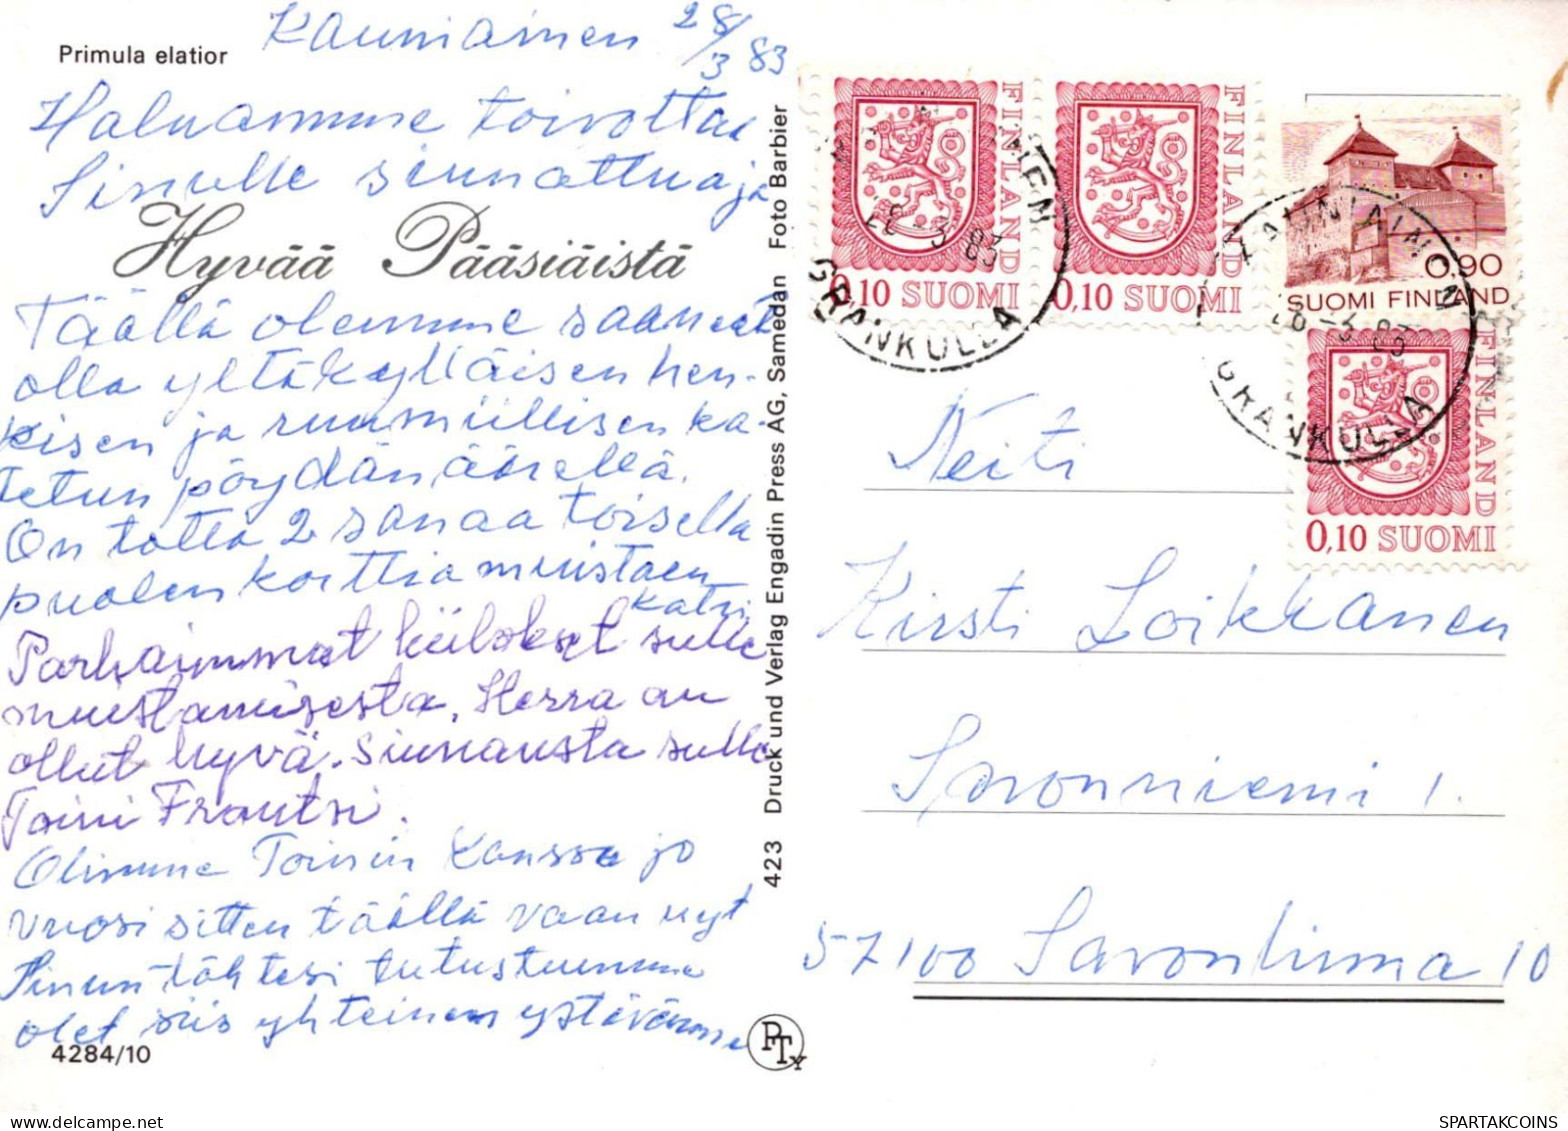 Primula elatior
Kauniainen 28/3 83
Haluamme toivottaa
Sinulle siunattua ja
Hyvää Pääsiäistä
Täällä olemme saaneet
olla yltäkylläisen hen-
kisen ja ruumiillisen ka-
tetun pöydän äärellä.
On totta 2 sanaa toisella
puolen korttia muistaen
Katri
Parhaimmat kiitokset sulle
muistamisesta. Herra on
ollut hyvä. Siunausta sulle
Toini Frantsi.
Olimme Toinin kanssa jo
vuosi sitten täällä vaan nyt
Sinun tähtesi tutustuimme
olet siis yhteinen ystävämme
4284/10
423 Druck und Verlag Engadin Press AG, Samedan Foto Barbier
PTY
FINLAND
0,10 SUOMI
FINLAND
0,10 SUOMI
0,90
SUOMI FINLAND
FINLAND
0,10 SUOMI
GRANKULLA
KAUNIAINEN
28-3 83
GRANKULLA
Neiti
Kirsti Loikkanen
Savonniemi 1.
57100 Savonlinna 10
SPARTAKCOINS